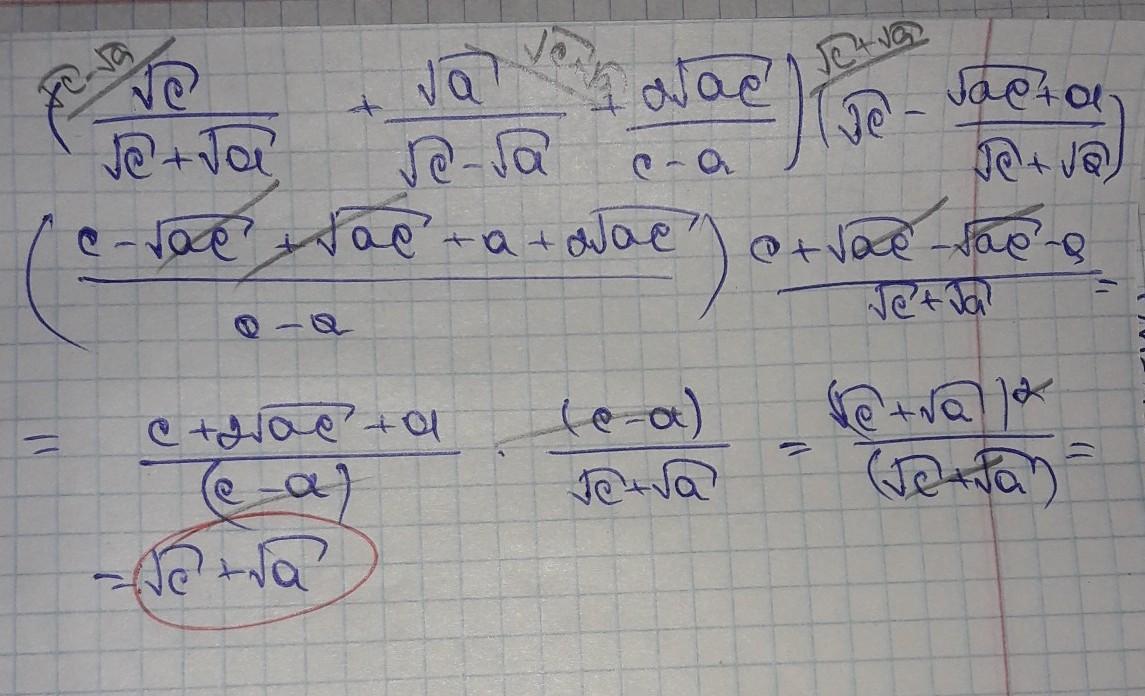 √c - √a √c + √a √c + √a
(√c/(√c + √a) + √a/(√c - √a) + 2√ac/(c - a)) (√c - (√ac + a)/(√c + √a))
((c - √ac + √ac + a + 2√ac)/(c - a)) (c + √ac - √ac - a)/(√c + √a) =
= (c + 2√ac + a)/(c - a) · (c - a)/(√c + √a) = (√c + √a)²/(√c + √a) =
= √c + √a